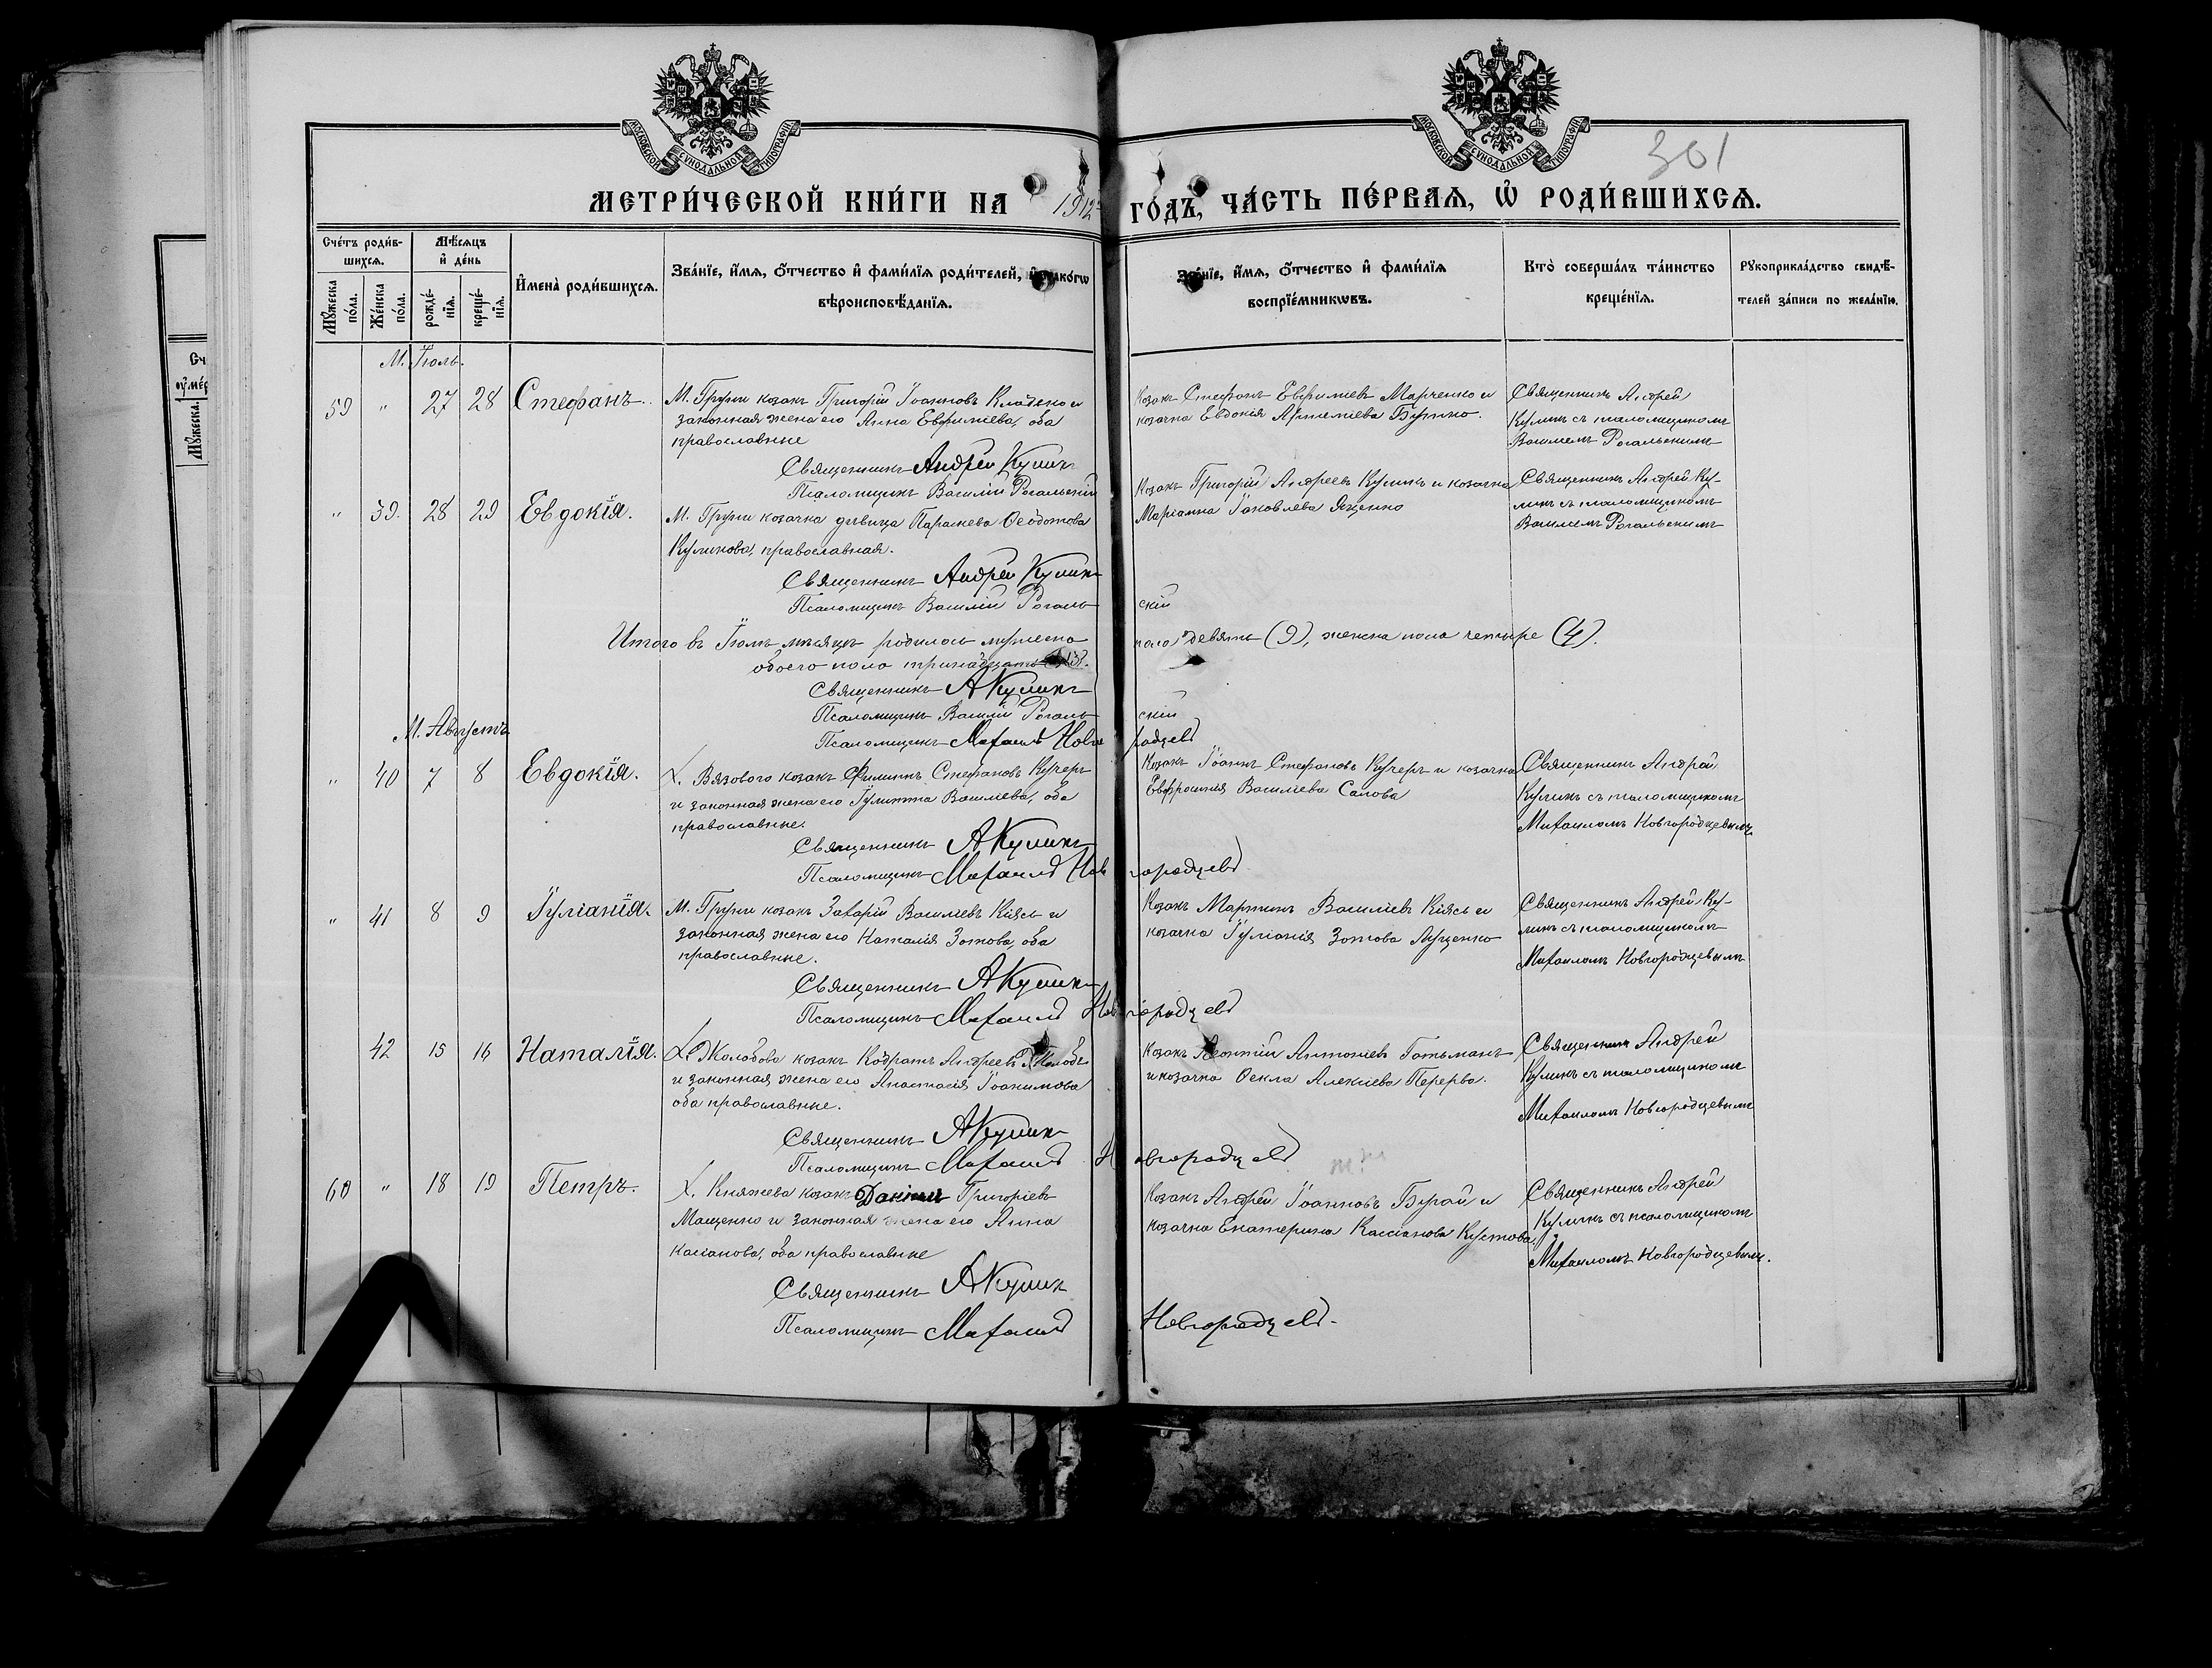 МОСКОВСКОЙ СУНОДАЛЬНОЙ ТИПОГРАФІИ
МОСКОВСКОЙ СУНОДАЛЬНОЙ ТИПОГРАФІИ
301
МЕТРИ́ЧЕСКОЙ КНИ́ГИ НА 1912 ГО́ДЪ, ЧА́СТЬ ПЕ́РВАѦ, Ѡ РОДИ́ВШИХСѦ.
Сче́тъ роди́в-
шихсѧ.
Мѣ́сѧцъ
и҆ де́нь
Му́жеска
по́ла.
Же́нска
по́ла.
рожде́-
нїѧ.
креще́-
нїѧ.
И҆мена̀ роди́вшихсѧ.
Зва́нїе, и҆́мѧ, о҆́тчество и҆ фами́лїѧ роди́телей, и҆ како́гѡ
вѣроисповѣ́данїѧ.
Зва́нїе, и҆́мѧ, о҆́тчество и҆ фами́лїѧ
воспрїе́мникѡвъ.
Кто̀ соверша́лъ та́инство
креще́нїѧ.
Рукоприкла́дство свидѣ́-
телей за́писи по жела́нїю.
М. Іюль.
59 " 27 28 Стефанъ.
М. Груни козакъ Григорій Іоанновъ Кладько и
законная жена его Анна Евфиміева, оба
православные
Священникъ Андрей Куликъ
Псаломщикъ Василій Рогальскій
Козакъ Стефанъ Евфиміевъ Марченко и
козачка Евдокія Артеміева Бутко.
Священникъ Андрей
Куликъ съ псаломщикомъ
Василіемъ Рогальскимъ
" 39. 28 29 Евдокія.
М. Груни козачка дѣвица Параскева Ѳеодотова
Куликова, православная.
Священникъ Андрей Куликъ
Псаломщикъ Василій Рогальскій
Козакъ Григорій Андреевъ Куликъ и козачка
Маріанна Іаковлева Яценко
Священникъ Андрей Ку-
ликъ съ псаломщикомъ
Василіемъ Рогальскимъ
Итого въ Іюлѣ мѣсяцѣ родилось мужеска пола девять (9), женска пола четыре (4).
обоего пола тринадцать (13).
Священникъ АКуликъ
Псаломщикъ Василій Рогальскій
Псаломщикъ Михаилъ Новгородцевъ
М. Августъ
" 40 7 8 Евдокія.
Х. Вязового козакъ Филиппъ Стефановъ Кучеръ
и законная жена его Іулитта Василіева, оба
православные.
Священникъ АКуликъ
Псаломщикъ Михаилъ Новгородцевъ
Козакъ Іоаннъ Стефановъ Кучеръ и козачка
Евфросинія Василіева Салова
Священникъ Андрей
Куликъ съ псаломщикомъ
Михаиломъ Новгородцевымъ
" 41 8 9 Іуліанія.
М. Груни козакъ Захарій Василіевъ Кіясь и
законная жена его Наталія Зотова, оба
православные.
Священникъ АКуликъ
Псаломщикъ Михаилъ Новгородцевъ
Козакъ Мартинъ Василіевъ Кіясь и
козачка Іуліанія Зотова Луценко
Священникъ Андрей Ку-
ликъ съ псаломщикомъ
Михаиломъ Новгородцевымъ
42 15 16 Наталія.
Х. Жолобова козакъ Кодратъ Андреевъ Жолобъ
и законная жена его Анастасія Іоакимова
оба православные.
Священникъ АКуликъ
Псаломщикъ Михаилъ Новгородцевъ
Козакъ Леонтій Антоніевъ Готьманъ
и козачка Ѳекла Алексіева Перерва.
Священникъ Андрей
Куликъ съ псаломщикомъ
Михаиломъ Новгородцевымъ
60 " 18 19 Петръ.
Х. Княжева козакъ Даніилъ Григоріевъ
Мащенко и законная жена его Анна
Касіанова, оба православные
Священникъ АКуликъ
Псаломщикъ Михаилъ Новгородцевъ.
Козакъ Андрей Іоанновъ Бурай и
козачка Екатерина Кассіанова Кустова.
Священникъ Андрей
Куликъ съ псаломщикомъ
Михаиломъ Новгородцевымъ.